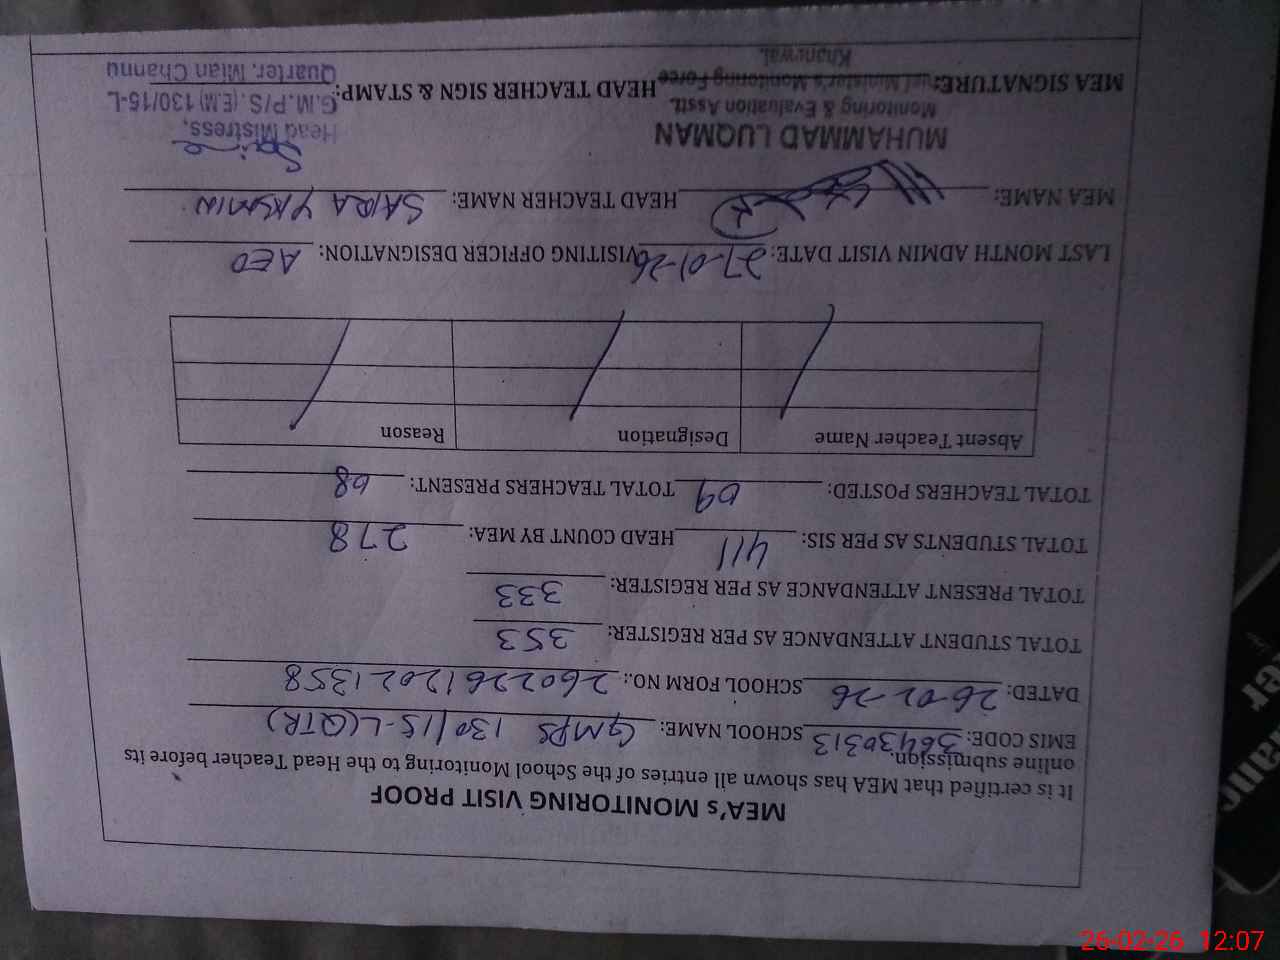 MEA's MONITORING VISIT PROOF
It is certified that MEA has shown all entries of the School Monitoring to the Head Teacher before its
online submission.
EMIS CODE: 36430313 SCHOOL NAME: GMPS 130/15-L (QTR)
DATED: 26-02-26 SCHOOL FORM NO.: 26022612021358
TOTAL STUDENT ATTENDANCE AS PER REGISTER: 353
TOTAL PRESENT ATTENDANCE AS PER REGISTER: 333
TOTAL STUDENTS AS PER SIS: 411 HEAD COUNT BY MEA: 278
TOTAL TEACHERS POSTED: 09 TOTAL TEACHERS PRESENT: 08
Absent Teacher Name Designation Reason
LAST MONTH ADMIN VISIT DATE: 27-01-26 VISITING OFFICER DESIGNATION: AEO
MEA NAME: HEAD TEACHER NAME: SAIRA YASMIN
MUHAMMAD LUQMAN
Monitoring & Evaluation Asstt.
Head Mistress,
G.M.P/S. (E.M) 130/15-L
MEA SIGNATURE: Minister's Monitoring Force HEAD TEACHER SIGN & STAMP:
Quarter, Mian Channu
Khanewal.
26-02-26 12:07